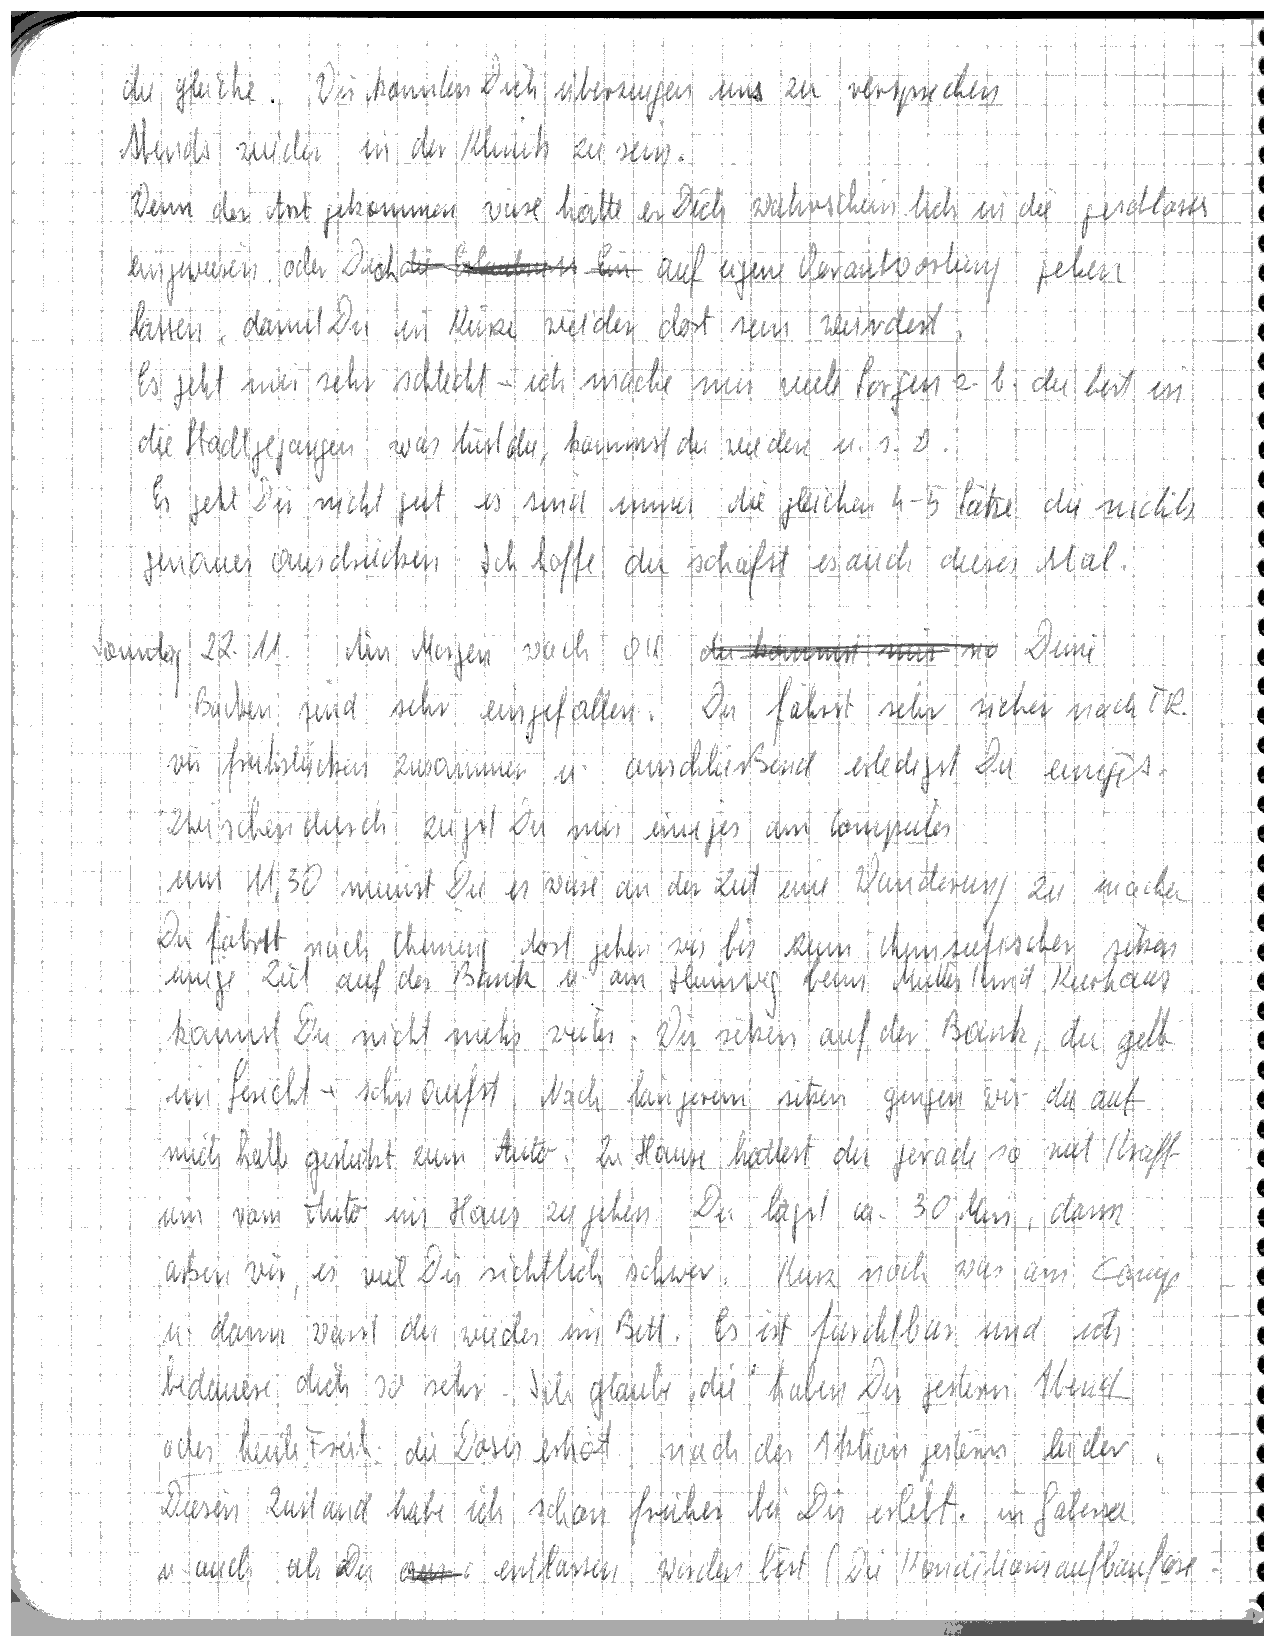 die gleiche. Wir konnten Dich überzeugen uns zu versprechen
Abends wieder in der Klinik zu sein.
Wenn der Arzt gekommen wäre hätte er Dich wahrscheinlich in die geschlossene
eingewiesen oder Dich auf eigene Verantwortung gehen
lassen, damit Du in Kürze wieder dort sein würdest.
Es geht mir sehr schlecht – ich mache mir viele Sorgen z. b. du bist in
die Stadt gegangen was tust du, kommst du wieder u. s. w.
Es geht Dir nicht gut es sind immer die gleichen 4-5 Sätze die nichts
genaues ausdrücken Ich hoffe du schafst es auch dieses Mal.
Sonntag 22. 11. Am Morgen nach Deine
Backen sind sehr eingefallen. Du fährst sehr sicher nach TR.
wir frühstücken zusammen u. anschließend erledigst Du einiges.
Zwischendurch zeigst Du mir einiges am Computer
um 11,30 meinst Du es wäre an der Zeit eine Wanderung zu machen
Du fährst nach Chieming dort gehen wir bis zum sitzen
einige Zeit auf der Bank u. am Heimweg beim Mutter und Kurhaus
kannst Du nicht mehr weiter. Wir sitzen auf der Bank, du gelb
im Gesicht – schnaufst. Nach längerem sitzen gingen wir du auf
mich halb gestützt zum Auto. Zu Hause hattest du gerade so viel Kraft
um vom Auto ins Haus zu gehen. Du lagst ca. 30 Min, dann
aßen wir, es viel Dir sichtlich schwer. Kurz noch was am Comp
u. dann warst du wieder im Bett. Es ist furchtbar und ich
bedauere dich so sehr. Ich glaube „die" haben Dir gestern Abend
oder heute Früh die Dosis erhöt nach der Aktion gestern leider.
Diesen Zustand habe ich schon früher bei Dir erlebt. in Gabersee
u. auch als Du entlassen worden bist (Die Konditionsaufbaufase -